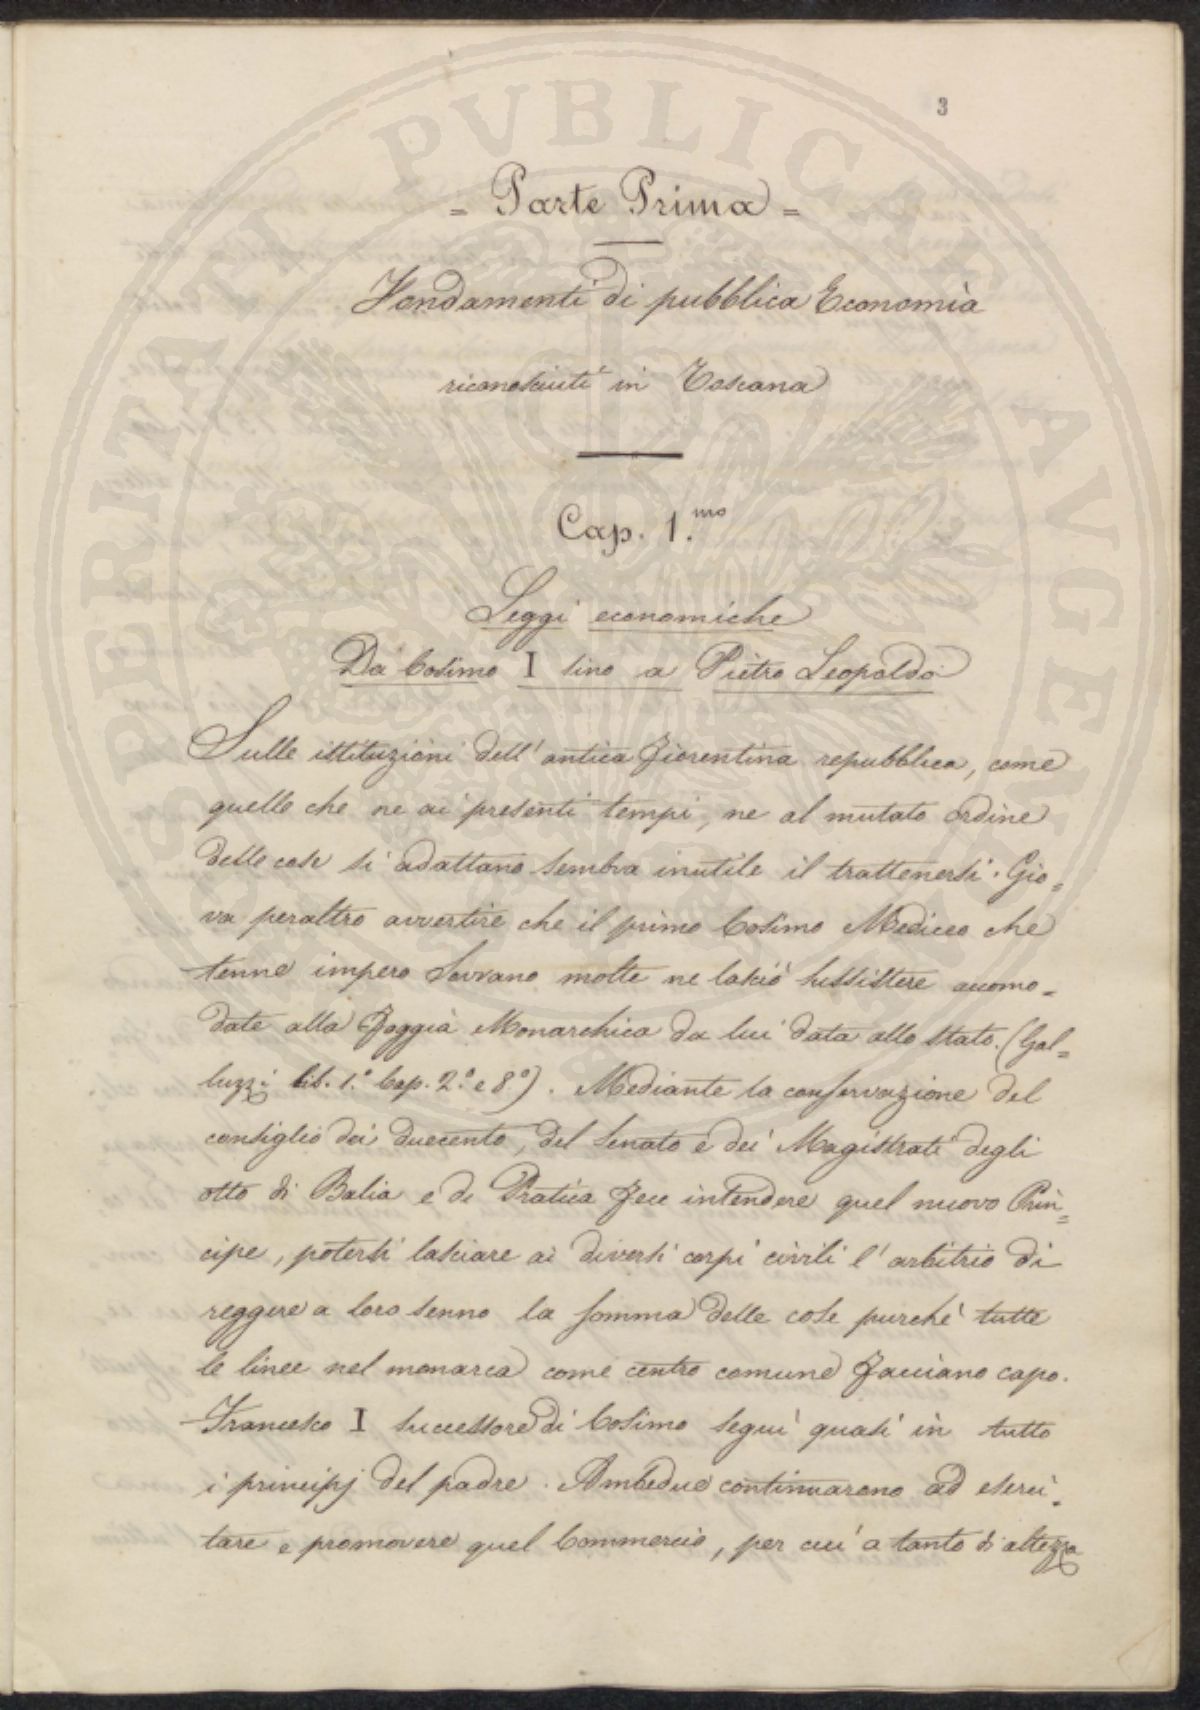 3
= Parte Prima =
Fondamenti di pubblica Economia
riconosciuti in Toscana
Cap. 1.mo
Leggi economiche
Da Cosimo I sino a Pietro Leopoldo
Sulle istituzioni dell' antica fiorentina repubblica, come
quelle che ne ai presenti tempi, ne al mutato ordine
delle cose si adattano sembra inutile il trattenersi. Gio=
va peraltro avvertire che il primo Cosimo Mediceo che
tenne impero sovrano molte ne lasciò sussistere acomo=
date alla foggia Monarchica da lui data allo stato. (Gal=
luzzi lib. 1.° Cap. 2.° e 8°). Mediante la conservazione del
consiglio dei duecento, del senato e dei Magistrati degli
otto di Balia e di Pratica fece intendere quel nuovo Prin=
cipe, potersi lasciare ai diversi corpi civili l' arbitrio di
reggere a loro senno la somma delle cose purchè tutte
le linee nel monarca come centro comune facciano capo.
Francesco I successore di Cosimo seguì quasi in tutto
i principj del padre. Ambedue continuarono ad eserci=
tare e promovere quel Commercio, per cui a tanto di altezza
PROSPERITATI PVBLICAE AVGENDAE